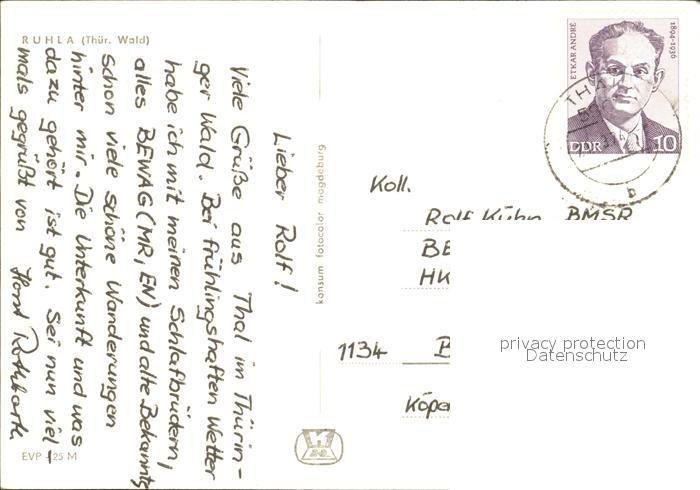 RUHLA (Thür. Wald)
Lieber Rolf!
Viele Grüße aus Thal im Thürin-
ger Wald. Bei frühlingshaften Wetter
habe ich mit meinen Schlafbrüdern,
alles BEWAG (MR, EN) und alte Bekannte
schon viele schöne Wanderungen
hinter mir. Die Unterkunft und was
dazu gehört ist gut. Sei nun viel-
mals gegrüßt von Horst
EVP 25 M
konsum fotocolor magdeburg
ETKAR ANDRÉ
1894-1936
DDR 10
TH
b
Koll.
Rolf Kühn BMSR
BE
HK
1134 B
Köpe
privacy protection
Datenschutz